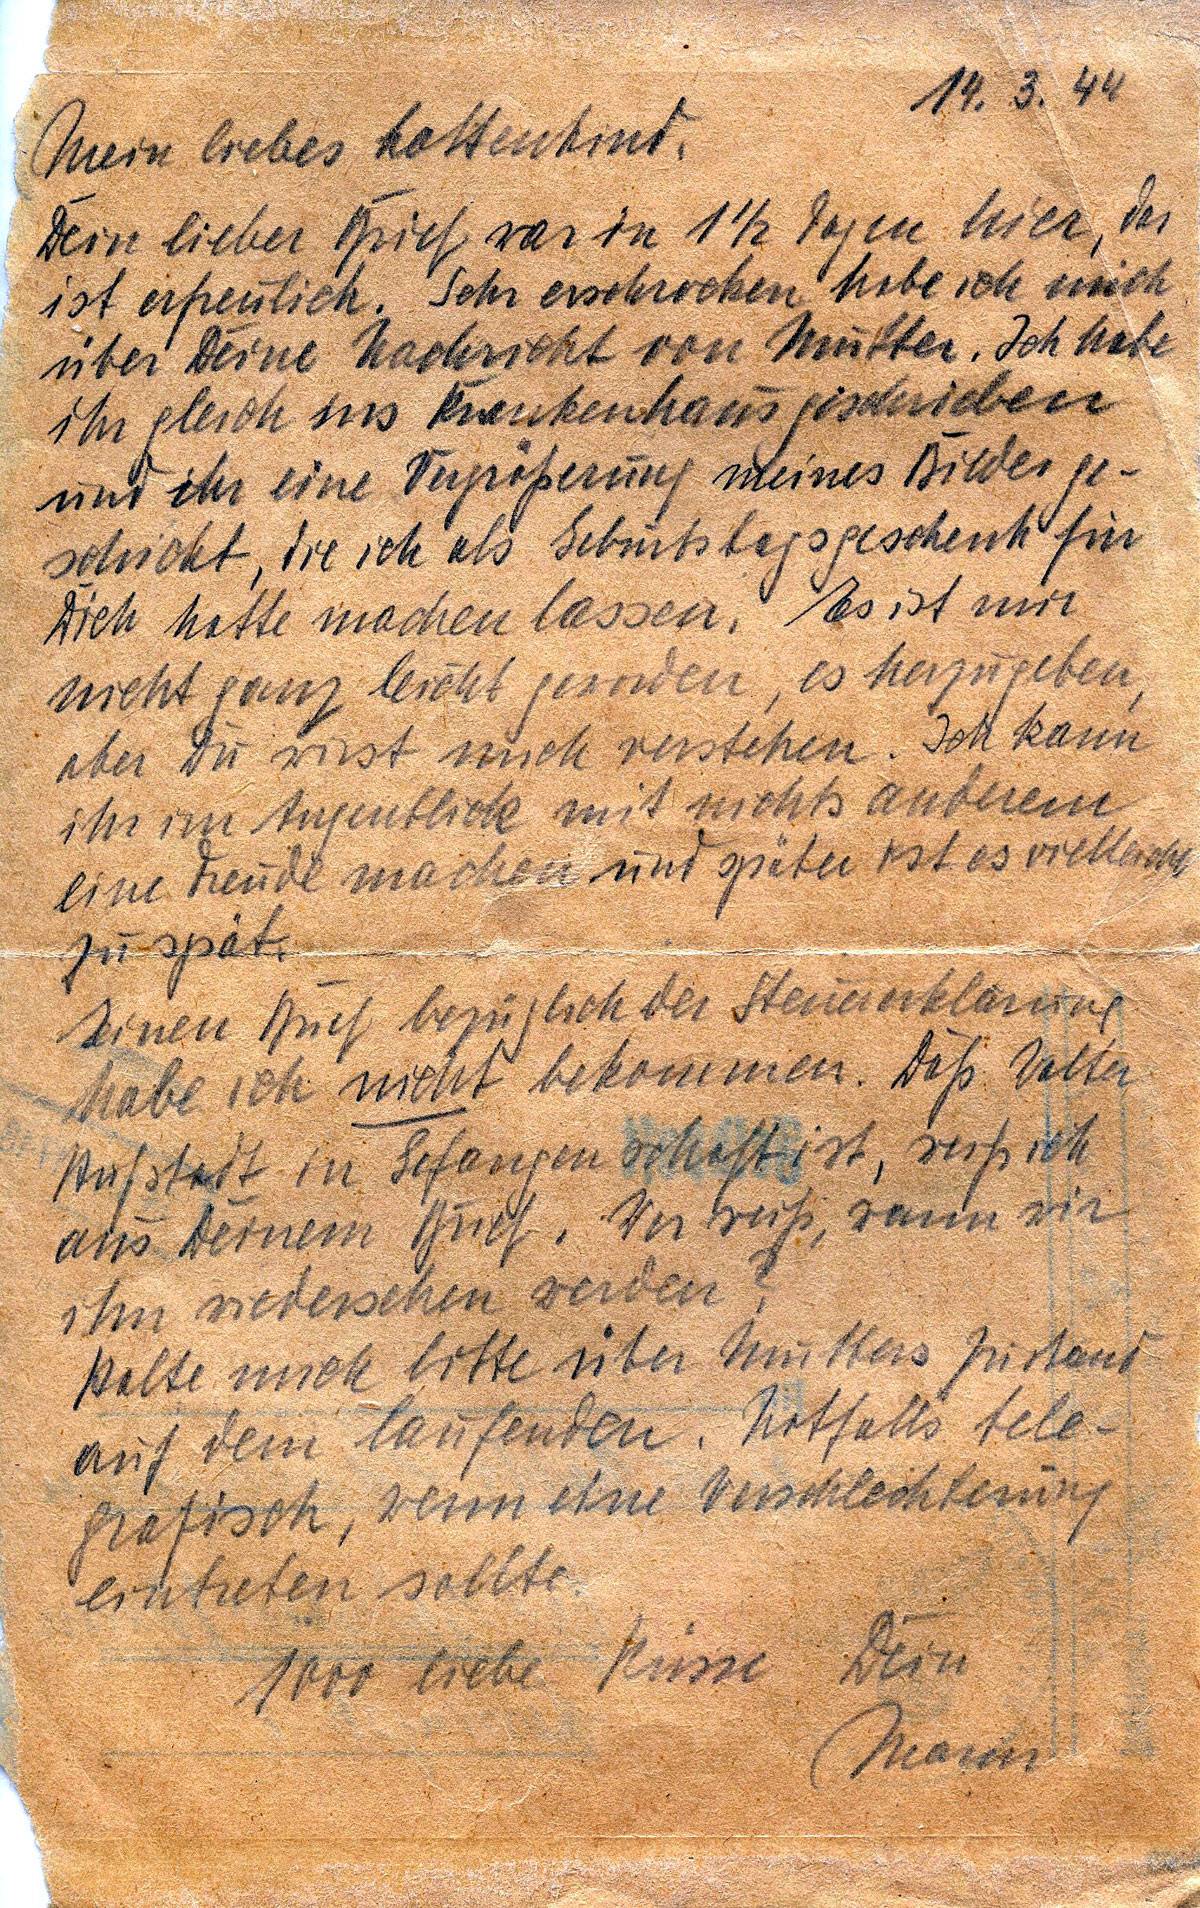 14. 3. 44
Mein liebes Kattenkind.
Dein lieber Brief war in 1 1/2 Tagen hier, das
ist erfreulich. Sehr erschrocken habe ich mich
über Deine Nachricht von Mutter. Ich habe
ihr gleich ins Krankenhaus geschrieben
und ihr eine Vergrößerung meines Bildes ge-
schickt, die ich als Geburtstagsgeschenk für
Dich hatte machen lassen. Es ist mir
nicht ganz leicht geworden, es herzugeben,
aber Du wirst mich verstehen. Ich kann
ihr im Augenblick mit nichts anderem
eine Freude machen und später ist es vielleicht
zu spät.
Deinen Brief bezüglich der Steuererklärung
habe ich nicht bekommen. Daß Walter
in Gefangenschaft ist, weiß ich
aus Deinem Brief. Wer weiß, wann wir
ihn wiedersehen werden?
Halte mich bitte über Mutters Zustand
auf dem laufenden. Notfalls tele-
grafisch, wenn eine Verschlechterung
eintreten sollte.
1000 liebe Küsse Dein